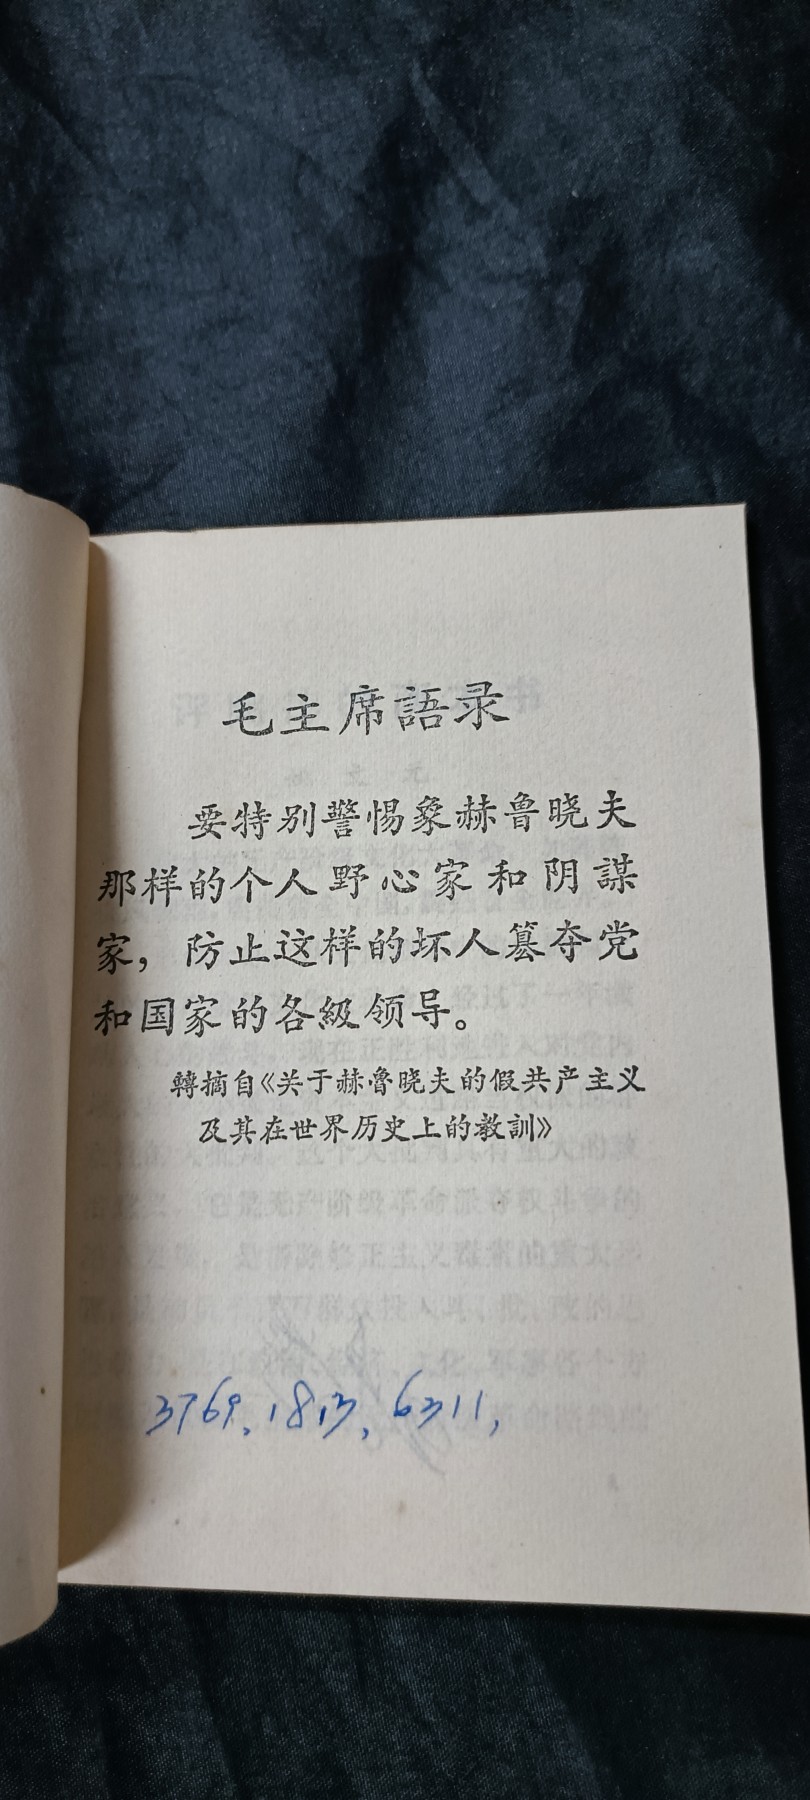 毛主席語录
要特别警惕象赫鲁晓夫
那样的个人野心家和阴謀
家，防止这样的坏人篡夺党
和国家的各級领导。
轉摘自《关于赫鲁晓夫的假共产主义
及其在世界历史上的教訓》
3769,1813,6311,